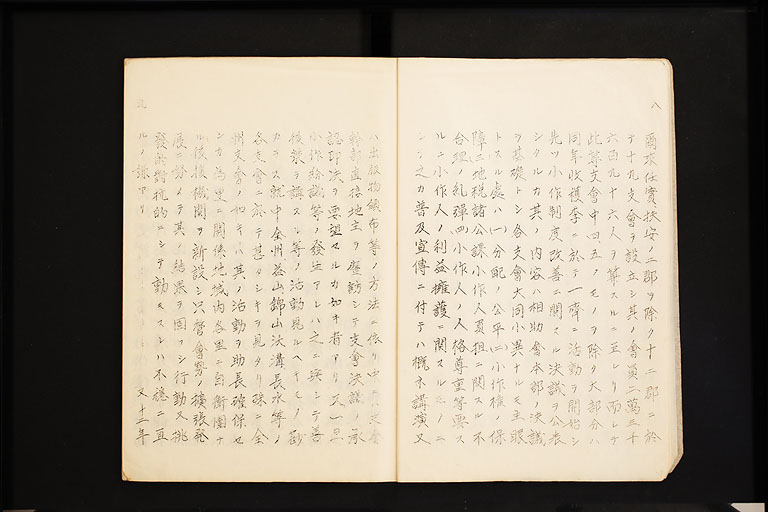 八
爾來任實扶安ノ二郡ヲ除ク十二郡ニ於
テ十九支會ヲ設立シ其ノ會員二萬三千
六百九十六人ヲ算スルニ至レリ而シテ
此等支會中四、五ノモノヲ除ク大部分ハ
同年收穫季ニ於テ一齊ニ活動ヲ開始シ
先ツ小作制度改善ニ關スル決議ヲ公表
シタルカ其ノ内容ハ相助會本部ノ決議
ヲ基礎トシ各支會大同小異ナルモ主眼
トスル處ハ一分配ノ公平(二)小作權ノ保
障三地稅諸公課小作人負担ニ關スル不
合理ノ糺彈四小作人ノ人格尊重等要ス
ルニ小作人ノ利益擁護ニ關スルモノニ
シテ之カ普及宣傳ニ付テハ概ネ講演又
九
ハ出版物頒布等ノ方法ニ依リ中ニハ支會
幹部直接地主ヲ歷訪シテ支會決議ノ承
認印決ヲ要望スルカ如キ者アリ又一旦
小作紛議等ノ發生アレハ之ニ應シテ善
後策ヲ講スル等ノ活動見ルヘキモノ尠
カラス就中全州益山錦山沃溝長水等ノ
各支會ニ於テ甚タシキヲ見タリ殊ニ全
州支會ノ如キハ其ノ活動ヲ助長確保セ
ンカ爲里ニ關係地域内各里ニ自衛團ナ
ル後援機關ヲ新設シ只管會勢ノ擴張發
展ニ努メヲ其ノ結果ヲ固フシ行動又挑
發的對抗的ニシテ動モスレハ不穩ニ亘
ルノ嫌アリ 又十二年